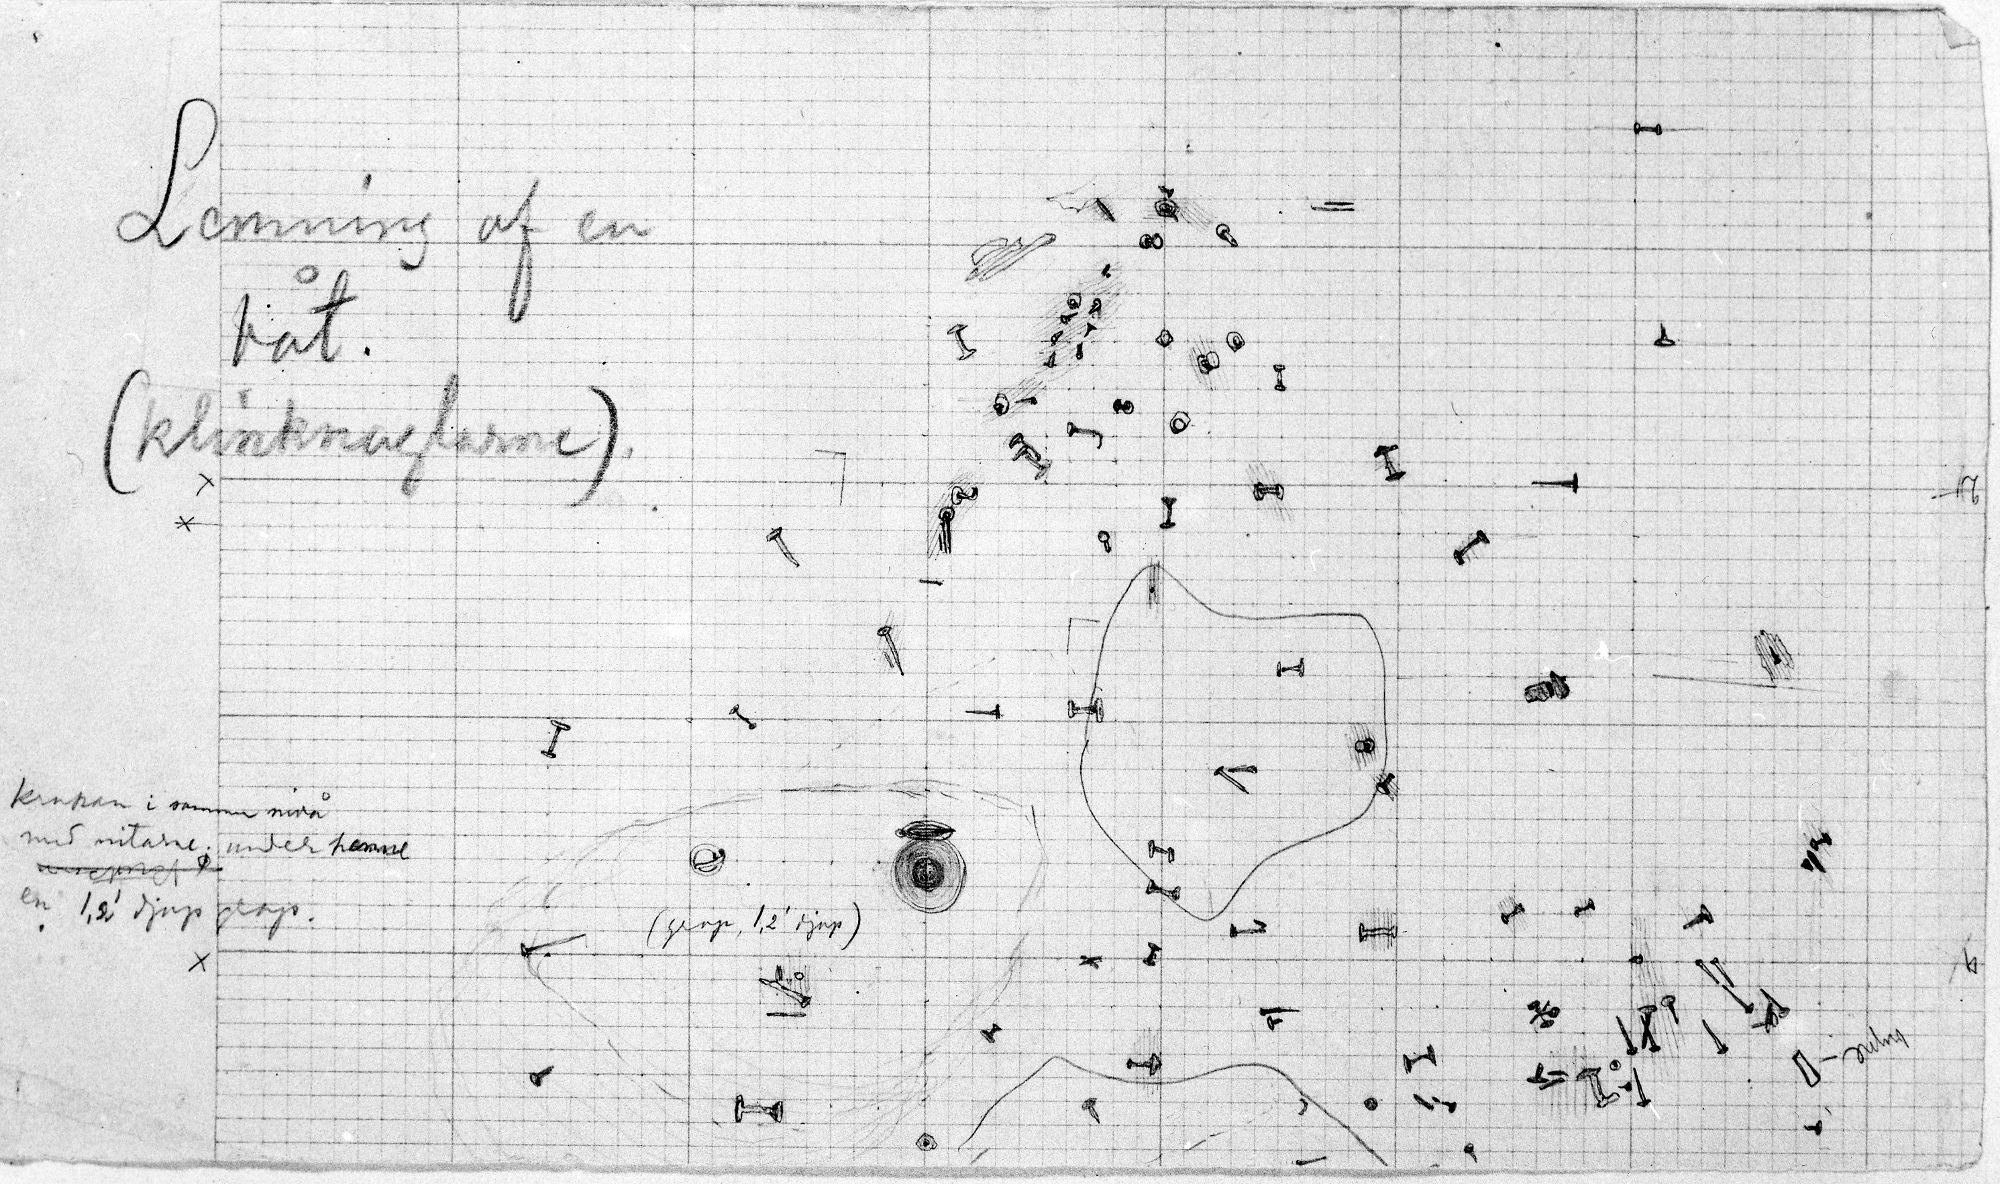 Lemning af en
båt.
(klinknaglarne).
Krukan i samma nivå
med nitarne. under henne
en 1,2' djup grop.
(grop, 1,2' djup)